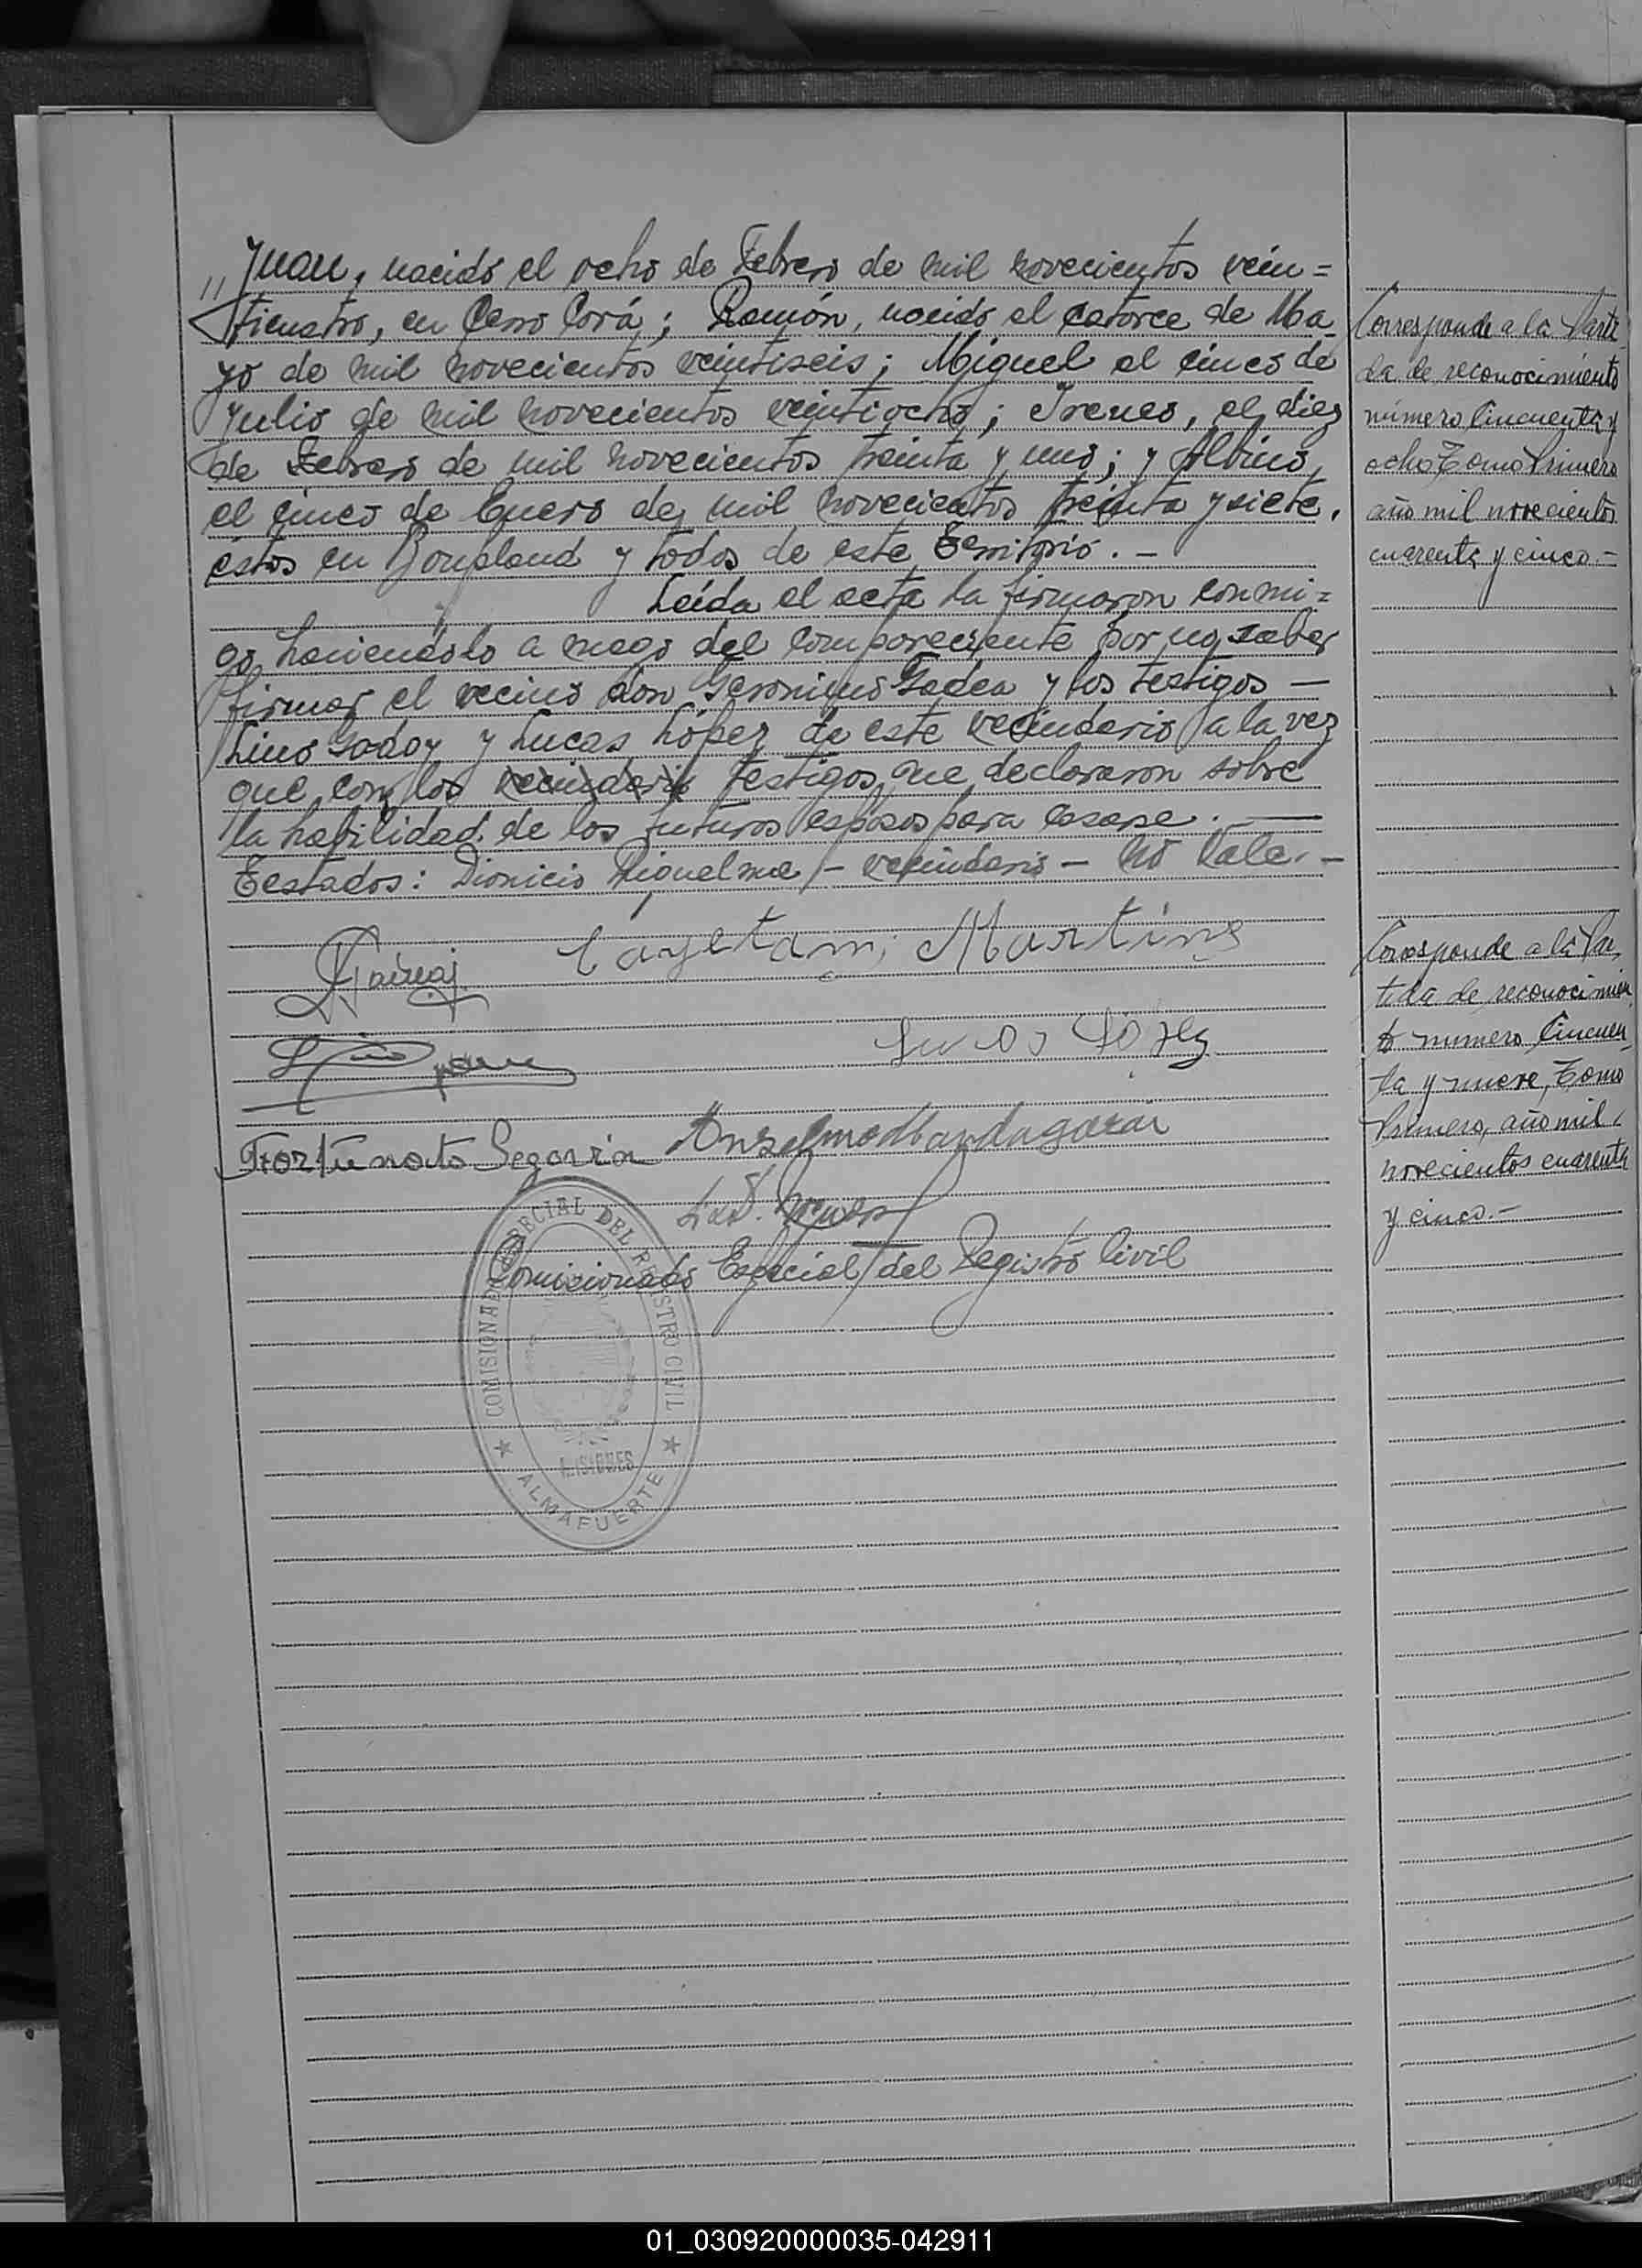 " Juan, nacido el ocho de Febrero de mil novecientos vein=
ticuatro, en Cerro Corá; Ramón, nacido el catorce de Ma_
yo de mil novecientos veintiseis; Miguel el cinco de
Julio de mil novecientos veintiocho; Irenes, el diez
de Febrero de mil novecientos treinta y uno; y Albino,
el cinco de Enero de mil novecientos treinta y siete.
éstos en Bonpland y todos de este Territorio. -
Leída el acta la firmaron conmi=
go haciendolo a ruego del compareciente por no saber
firmar el vecino don Geronimo Gadea y los testigos —
Lino Godoy y Lucas López de este vecindario a la vez
que con los vecindario testigos que declararon sobre
la habilidad de los futuros esposos para casarse. —
Testados: Dionicio Riquelme - vecindario - No Vale. -
Cayetano Martines
Lucas López
Fortunato Segovia Anselmo
Comisionado Especial del Registro Civil
COMISIONADO ESPECIAL DEL REGISTRO CIVIL
MISIONES
★ ALMAFUERTE ★
Corresponde a la Parti_
da de reconocimiento
número Cincuenta y
ocho Tomo Primero
año mil novecientos
cuarenta y cinco. -
Corresponde a la Par_
tida de reconocimien_
to numero Cincuen_
ta y nueve, Tomo
Primero, año mil
novecientos cuarenta
y cinco. -
01_030920000035-042911